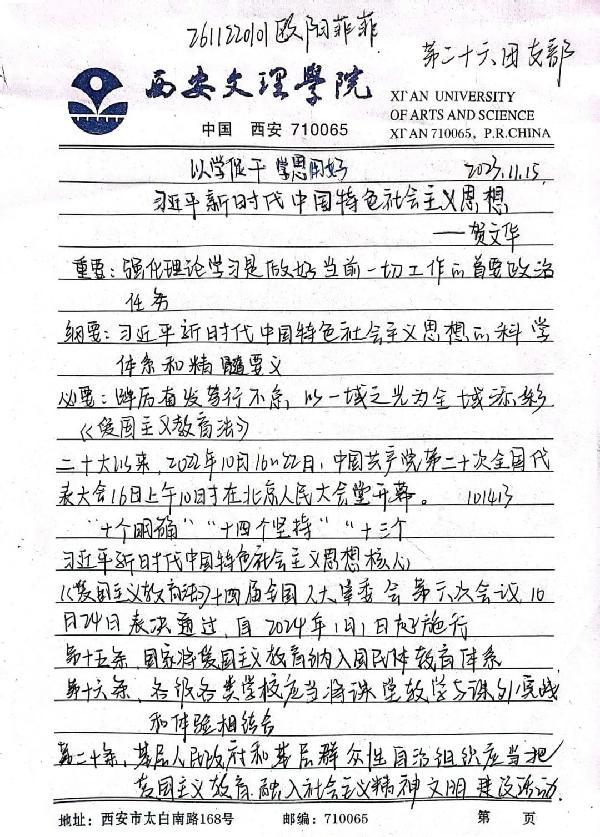 2611220101 欧阳菲菲
第二十六团支部
西安文理學院
XI'AN UNIVERSITY
OF ARTS AND SCIENCE
中国 西安 710065
XI'AN 710065, P.R.CHINA
以学促干 学思用好 2023.11.15
习近平新时代中国特色社会主义思想
——贺文华
重要：强化理论学习是做好当前一切工作的首要政治
任务
纲要：习近平新时代中国特色社会主义思想的科学
体系和精髓要义
必要：踔厉奋发笃行不怠，以一域之光为全域添彩
《爱国主义教育法》
二十大以来，2022年10月16日~22日，中国共产党第二十次全国代
表大会16日上午10时在北京人民大会堂开幕。 101413
“十个明确”“十四个坚持”“十三个
习近平新时代中国特色社会主义思想核心
《爱国主义教育法》十四届全国人大常委会第六次会议10
月24日表决通过，自2024年1月1日起施行
第十五条、国家将爱国主义教育纳入国民体教育体系
第十六条、各级各类学校应当将课堂教学与课外实践
和体验相结合
第二十条、基层人民政府和基层群众性自治组织应当把
爱国主义教育融入社会主义精神文明建设活动.
地址：西安市太白南路168号 邮编：710065 第 页